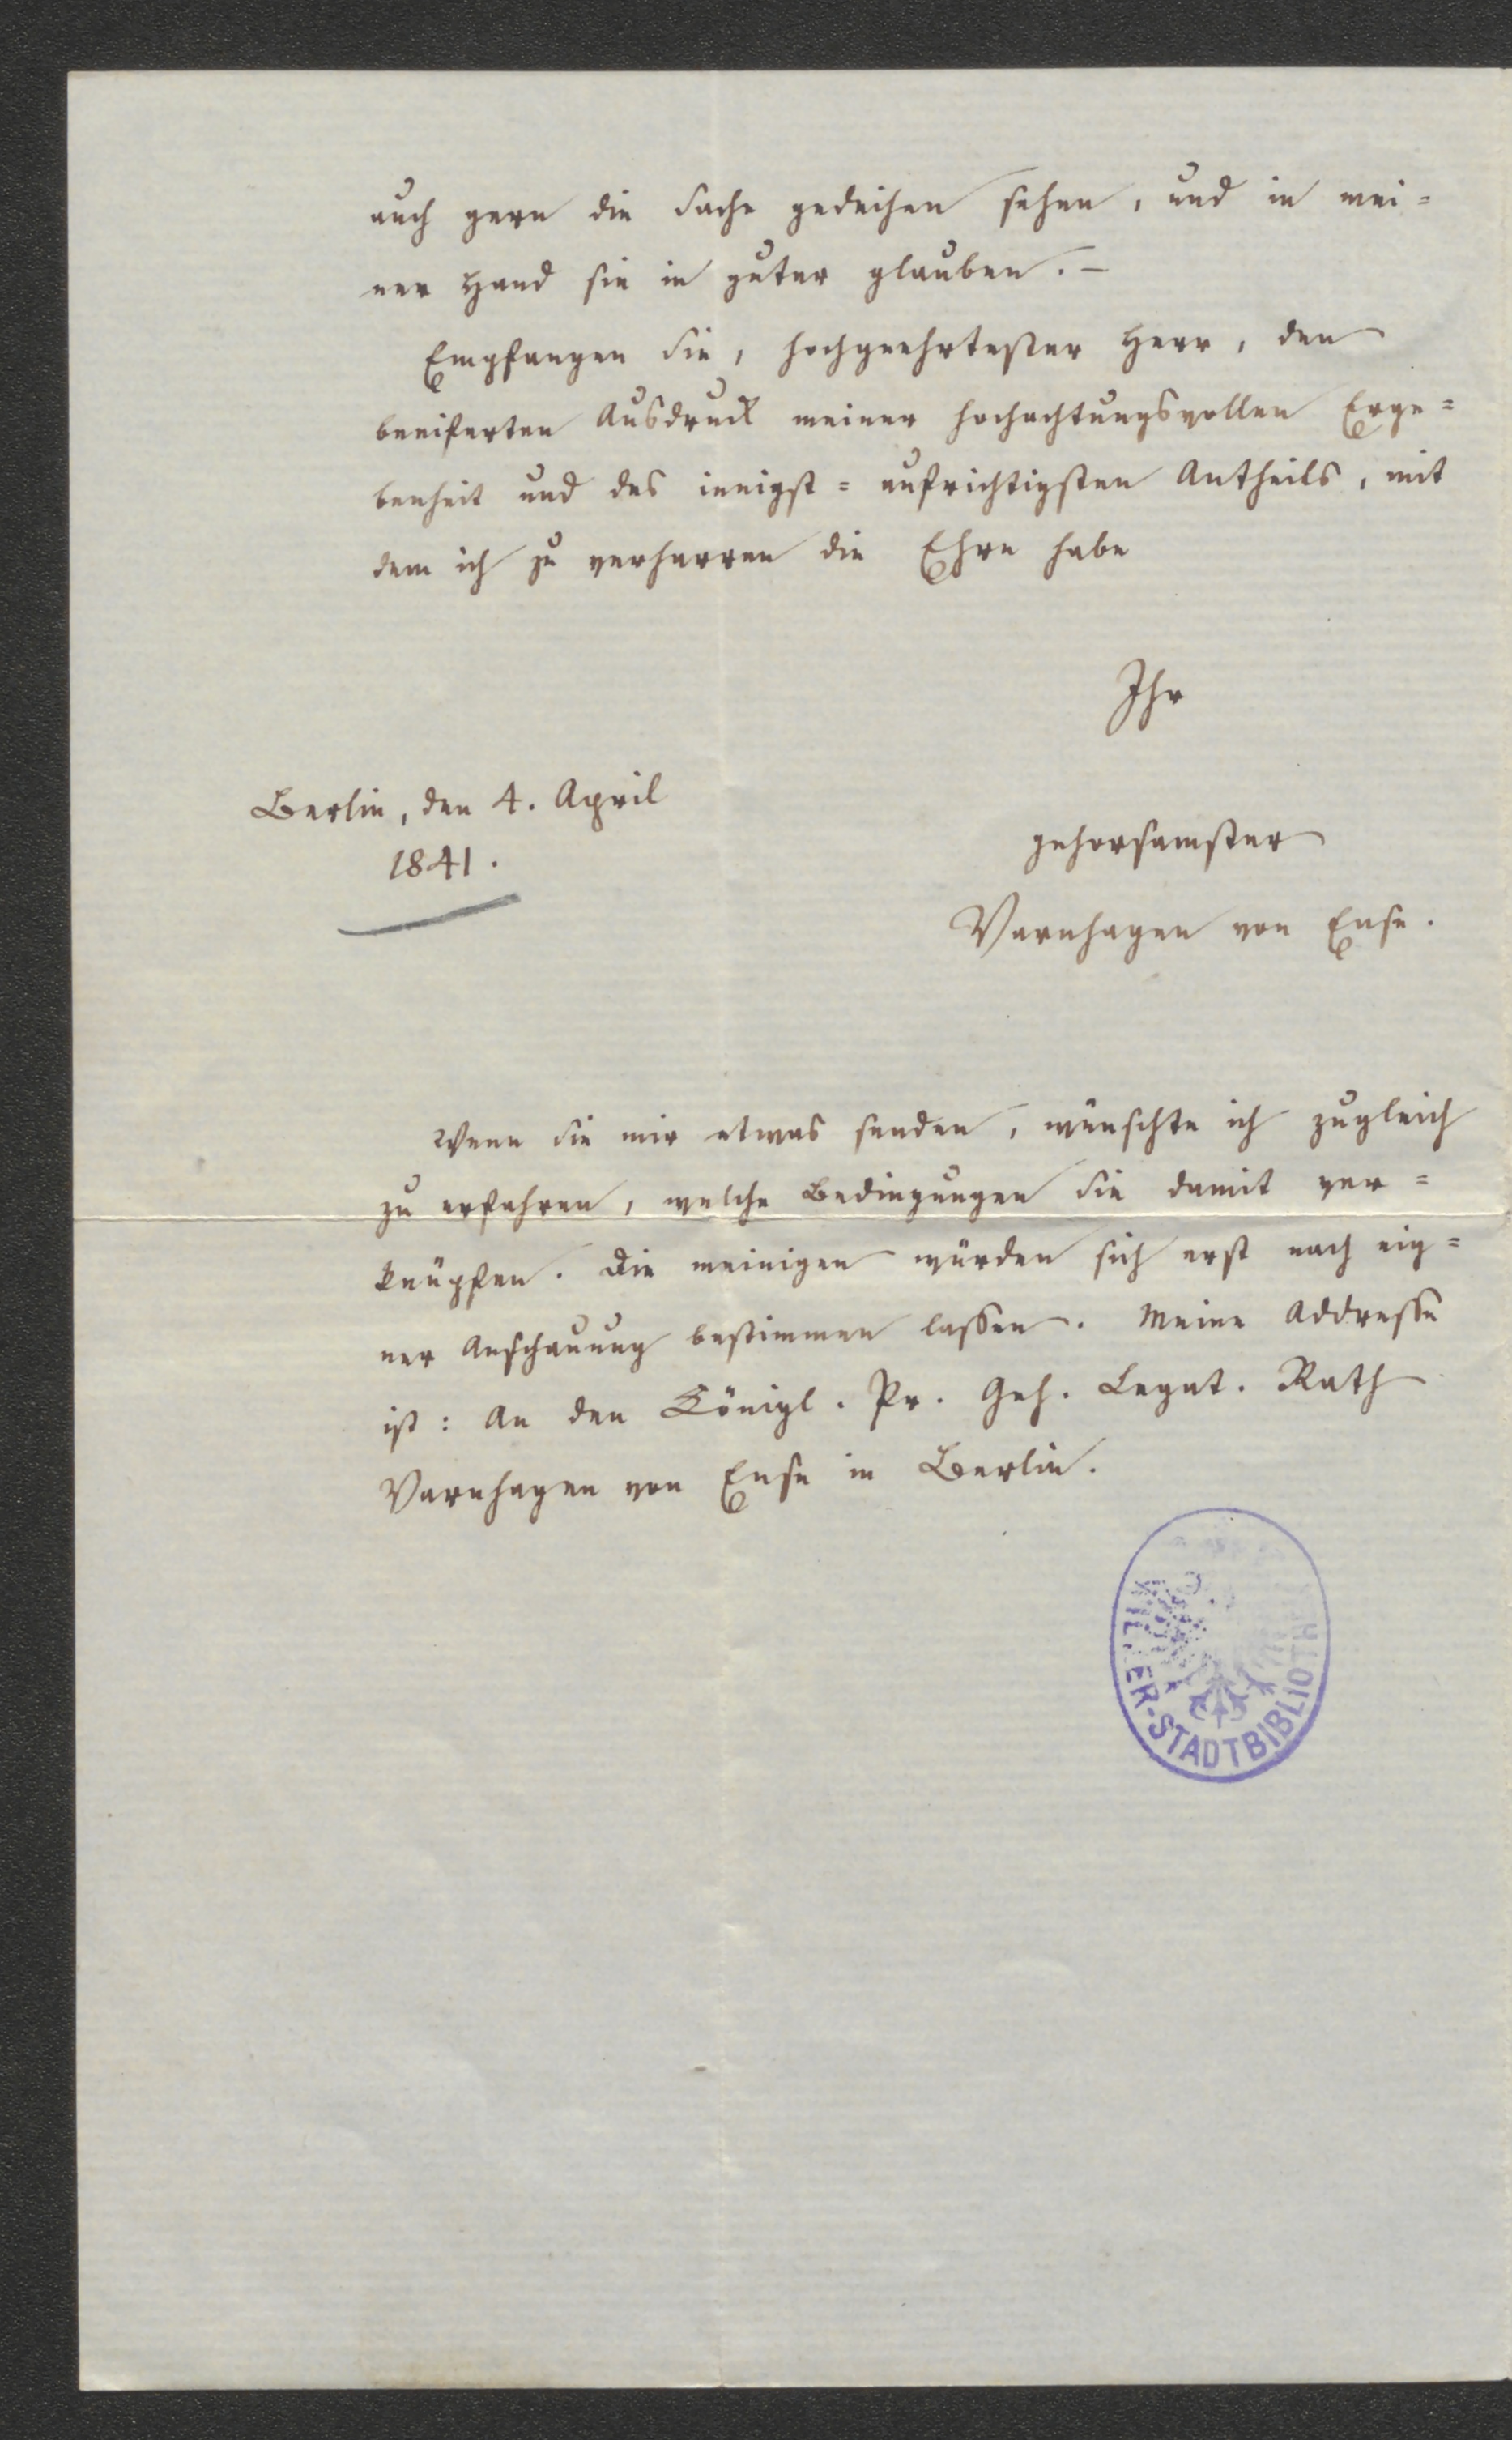 auch gern die Sache gedeihen sehen, und in mei=
ner Hand sie in guter glauben. –
Empfangen Sie, hochgeehrtester Herr, den
beeiferten Ausdruck meiner hochachtungsvollen Erge=
benheit und des innigst=aufrichtigsten Antheils, mit
dem ich zu verharren die Ehre habe
Ihr
Berlin, den 4. April
1841.
gehorsamster
Varnhagen von Ense.
Wenn Sie mir etwas senden, wünschte ich zugleich
zu erfahren, welche Bedingungen Sie damit ver=
knüpfen. Die meinigen würden sich erst nach eig=
ner Anschauung bestimmen lassen. Meine Addresse
ist: An den Königl. Pr. Geh. Legat. Rath
Varnhagen von Ense in Berlin.
STADTBIBLIOTH